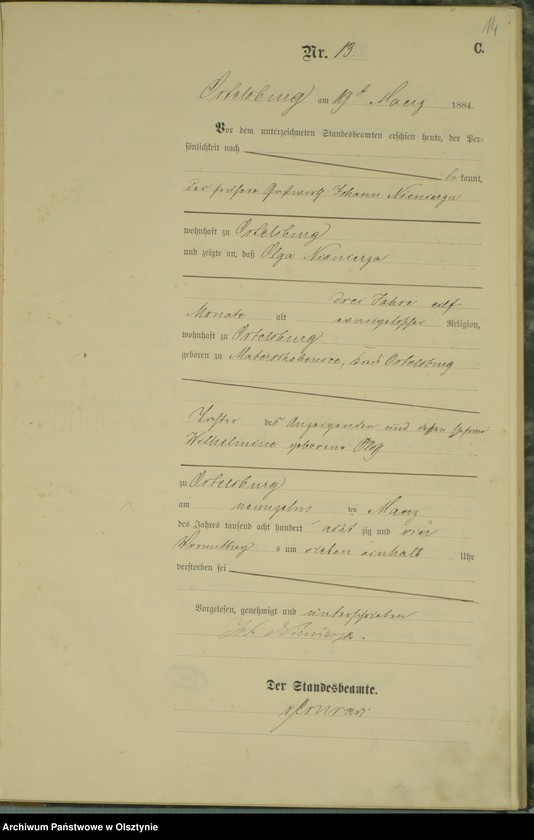 14
Nr. 13.
C.
Ortelsburg am 19t Maerz 1884.
Vor dem unterzeichneten Standesbeamten erschien heute, der Per-
sönlichkeit nach
be kannt,
der frühere Gastwirth Johann Nienierza
wohnhaft zu Ortelsburg
und zeigte an, daß Olga Nienierza
drei Jahre eilf
Monate alt evangelischer Religion,
wohnhaft zu Ortelsburg
geboren zu Materschobensee, Kreis Ortelsburg
Tochter des Anzeigenden und dessen Ehefrau
Wilhelmine geborene
zu Ortelsburg
am neunzehn ten Maerz
des Jahres tausend acht hundert acht zig und vier
Vormittag s um sieben einhalb Uhr
verstorben sei
Vorgelesen, genehmigt und unterschrieben
Joh. Nienierza.
Der Standesbeamte.
Archiwum Państwowe w Olsztynie